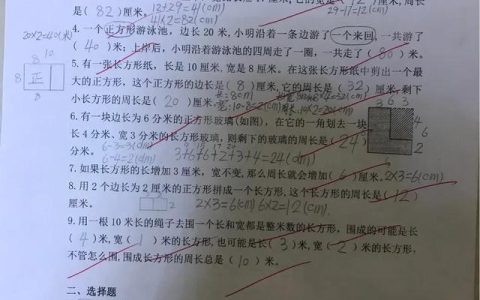 是( 82 )厘米。 12+29=41(cm) 29-17=12(cm)
41×2=82(cm)
4.一个正方形游泳池,边长20米,小明沿着一条边游了一个来回,一共游了
20×2=40(米)
( 40 )米;上岸后,小明沿着游泳池的四周走了一圈,一共走了( 80 )米。
5.有一张长方形纸,长是10厘米,宽是8厘米。在这张长方形纸中剪出一个最
大的正方形,这个正方形的边长是( 8 )厘米,它的周长是( 32 )厘米,剩下
小长方形的周长是( 20 )厘米。
8 正 8
6.有一块边长为6分米的正方形玻璃(如图),在它的一角划去一块
长4分米、宽3分米的长方形玻璃,则剩下的玻璃的周长是( 24 )
分米。 6-3=3(dm)
6-4=2(dm) 3+6+6+2+3+4=24(dm)
3 6 3
4
6
2
7.如果长方形的长增加3厘米,宽不变,那么周长就会增加( 6 )厘米。 2×3=6(cm)
8.用2个边长为2厘米的正方形拼成一个长方形,这个长方形的周长是( 12 )
厘米。 2 2×3=6(cm) 6×2=12(cm)
9.用一根10米长的绳子去围一个长和宽都是整米数的长方形,围成的可能是长
( 4 )米,宽( 1 )米的长方形,也可能是长( 3 )米,宽( 2 )米的长方形,
不管怎么围,围成长方形的周长总是( 10 )米。
二、选择题